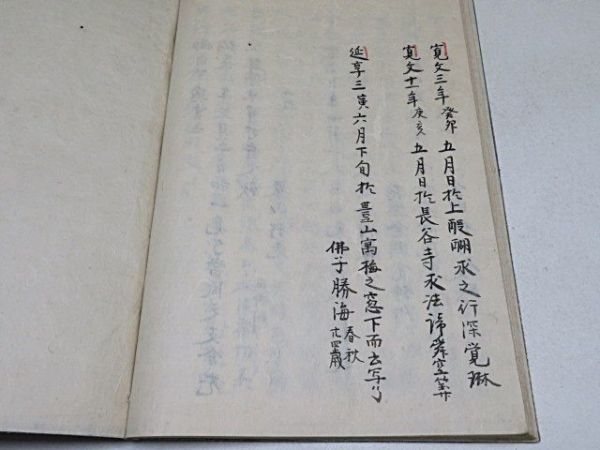 寛文三年癸卯五月日於上醍醐求之行深覚琳
寛文十一年庚亥五月日於長谷寺求法諦
延享三寅六月下旬於豊山寓梅之窓下而去写了
佛子勝海春秋廿四歳